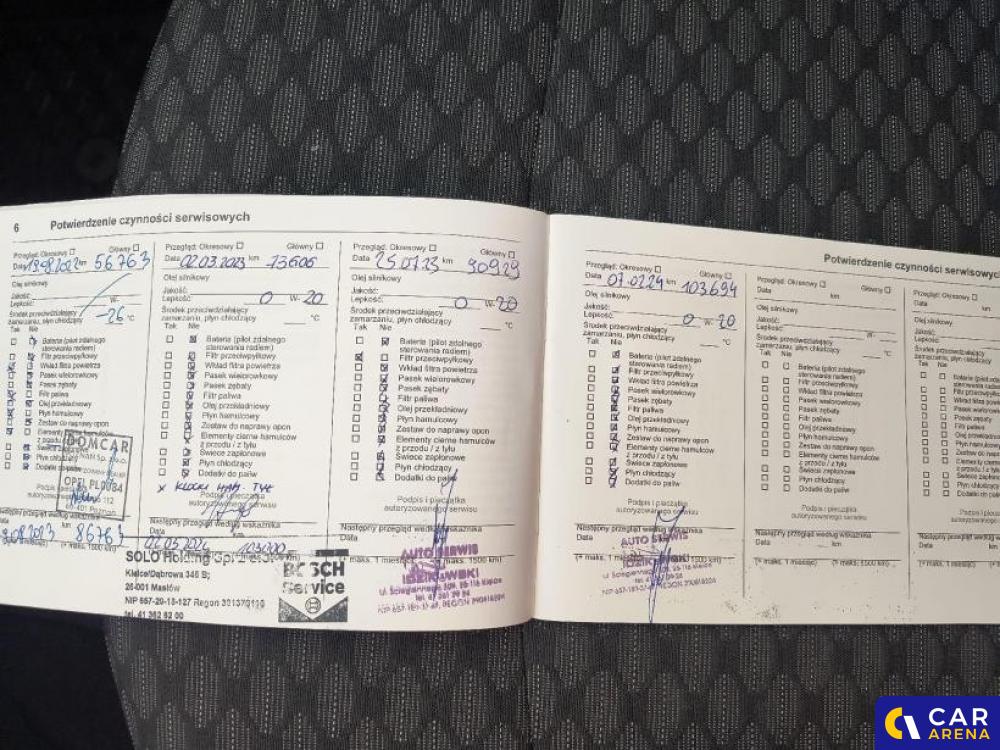 6 Potwierdzenie czynności serwisowych
Przegląd: Okresowy Główny
Data 19.08.2022 km 56763
Olej silnikowy
Jakość:
Lepkość: W-
Środek przeciwdziałający
zamarzaniu, płyn chłodzący -26 °C
Tak Nie
Bateria (pilot zdalnego
sterowania radiem)
Filtr przeciwpyłkowy
Wkład filtra powietrza
Pasek wielorowkowy
Pasek zębaty
Filtr paliwa
Olej przekładniowy
Płyn hamulcowy
Zestaw do naprawy opon
Elementy
z przodu / z tyłu
Świece
Płyn
Dodatki do
DOMCAR
OPEL PL0084
60-401 Poznań
Data km 86763
Przegląd: Okresowy Główny
Data 02.03.2023 km 73606
Olej silnikowy
Jakość:
Lepkość: 0 W-20
Środek przeciwdziałający
zamarzaniu, płyn chłodzący °C
Tak Nie
Bateria (pilot zdalnego
sterowania radiem)
Filtr przeciwpyłkowy
Wkład filtra powietrza
Pasek wielorowkowy
Pasek zębaty
Filtr paliwa
Olej przekładniowy
Płyn hamulcowy
Zestaw do naprawy opon
Elementy cierne hamulców
z przodu / z tyłu
Świece zapłonowe
Płyn chłodzący
Dodatki do paliw
x KLOCKI HAM. TYŁ
Podpis i pieczątka
autoryzowanego serwisu
Następny przegląd według wskaźnika
02.03.2024 103000
SOLO Holding Sp. z o.o.
Kielce/Dąbrowa 345 B;
26-001 Masłów
NIP 657-20-15-127 Regon
tel. 41 362 92 00
BOSCH
Service
Przegląd: Okresowy Główny
Data 25.07.23 km 90929
Olej silnikowy
Jakość:
Lepkość: 0 W-20
Środek przeciwdziałający
zamarzaniu, płyn chłodzący °C
Tak Nie
Bateria (pilot zdalnego
sterowania radiem)
Filtr przeciwpyłkowy
Wkład filtra powietrza
Pasek wielorowkowy
Pasek zębaty
Filtr paliwa
Olej przekładniowy
Płyn hamulcowy
Zestaw do naprawy opon
Elementy cierne hamulców
z przodu / z tyłu
Świece zapłonowe
Płyn chłodzący
Dodatki do paliw
Podpis i pieczątka
autoryzowanego serwisu
Następny przegląd według wskaźnika
Data km
(+ maks. 1 miesiąc) (+ maks. 1500 km)
AUTO SERWIS
IDZIKOWSKI
Potwierdzenie czynności serwisowych
Przegląd: Okresowy Główny
Data 07.02.24 km 103694
Olej silnikowy
Jakość:
Lepkość: 0 W-20
Środek przeciwdziałający
zamarzaniu, płyn chłodzący °C
Tak Nie
Bateria (pilot zdalnego
sterowania radiem)
Filtr przeciwpyłkowy
Wkład filtra powietrza
Pasek wielorowkowy
Pasek zębaty
Filtr paliwa
Olej przekładniowy
Płyn hamulcowy
Zestaw do naprawy opon
Elementy cierne hamulców
z przodu / z tyłu
Świece zapłonowe
Płyn chłodzący
Dodatki do paliw
Podpis i pieczątka
autoryzowanego serwisu
Następny przegląd według wskaźnika
Data km
(+ maks. 1 miesiąc) (+ maks. 1500 km)
AUTO SERWIS
Przegląd: Okresowy Główny
Data km
Olej silnikowy
Jakość:
Lepkość: W-
Środek przeciwdziałający
zamarzaniu, płyn chłodzący °C
Tak Nie
Bateria (pilot zdalnego
sterowania radiem)
Filtr przeciwpyłkowy
Wkład filtra powietrza
Pasek wielorowkowy
Pasek zębaty
Filtr paliwa
Olej przekładniowy
Płyn hamulcowy
Zestaw do naprawy opon
Elementy cierne hamulców
z przodu / z tyłu
Świece zapłonowe
Płyn chłodzący
Dodatki do paliw
Podpis i pieczątka
autoryzowanego serwisu
Następny przegląd według wskaźnika
Data km
(+ maks. 1 miesiąc) (+ maks. 1500 km)
Przegląd: Okresowy
Data
Olej silnikowy
Jakość:
Lepkość:
Środek przeciwdziałający
zamarzaniu, płyn chłodzący
Tak Nie
Bateria (pilot
sterowania
Filtr przeciwpyłkowy
Wkład filtra
Pasek
Pasek zębaty
Filtr paliwa
Olej
Płyn hamulcowy
Zestaw do
Elementy
z przodu /
Świece
Płyn chłodzący
Dodatki do
Podpis
autoryzowanego
Następny przegląd
Data
(+ maks. 1 miesiąc)
CAR
ARENA